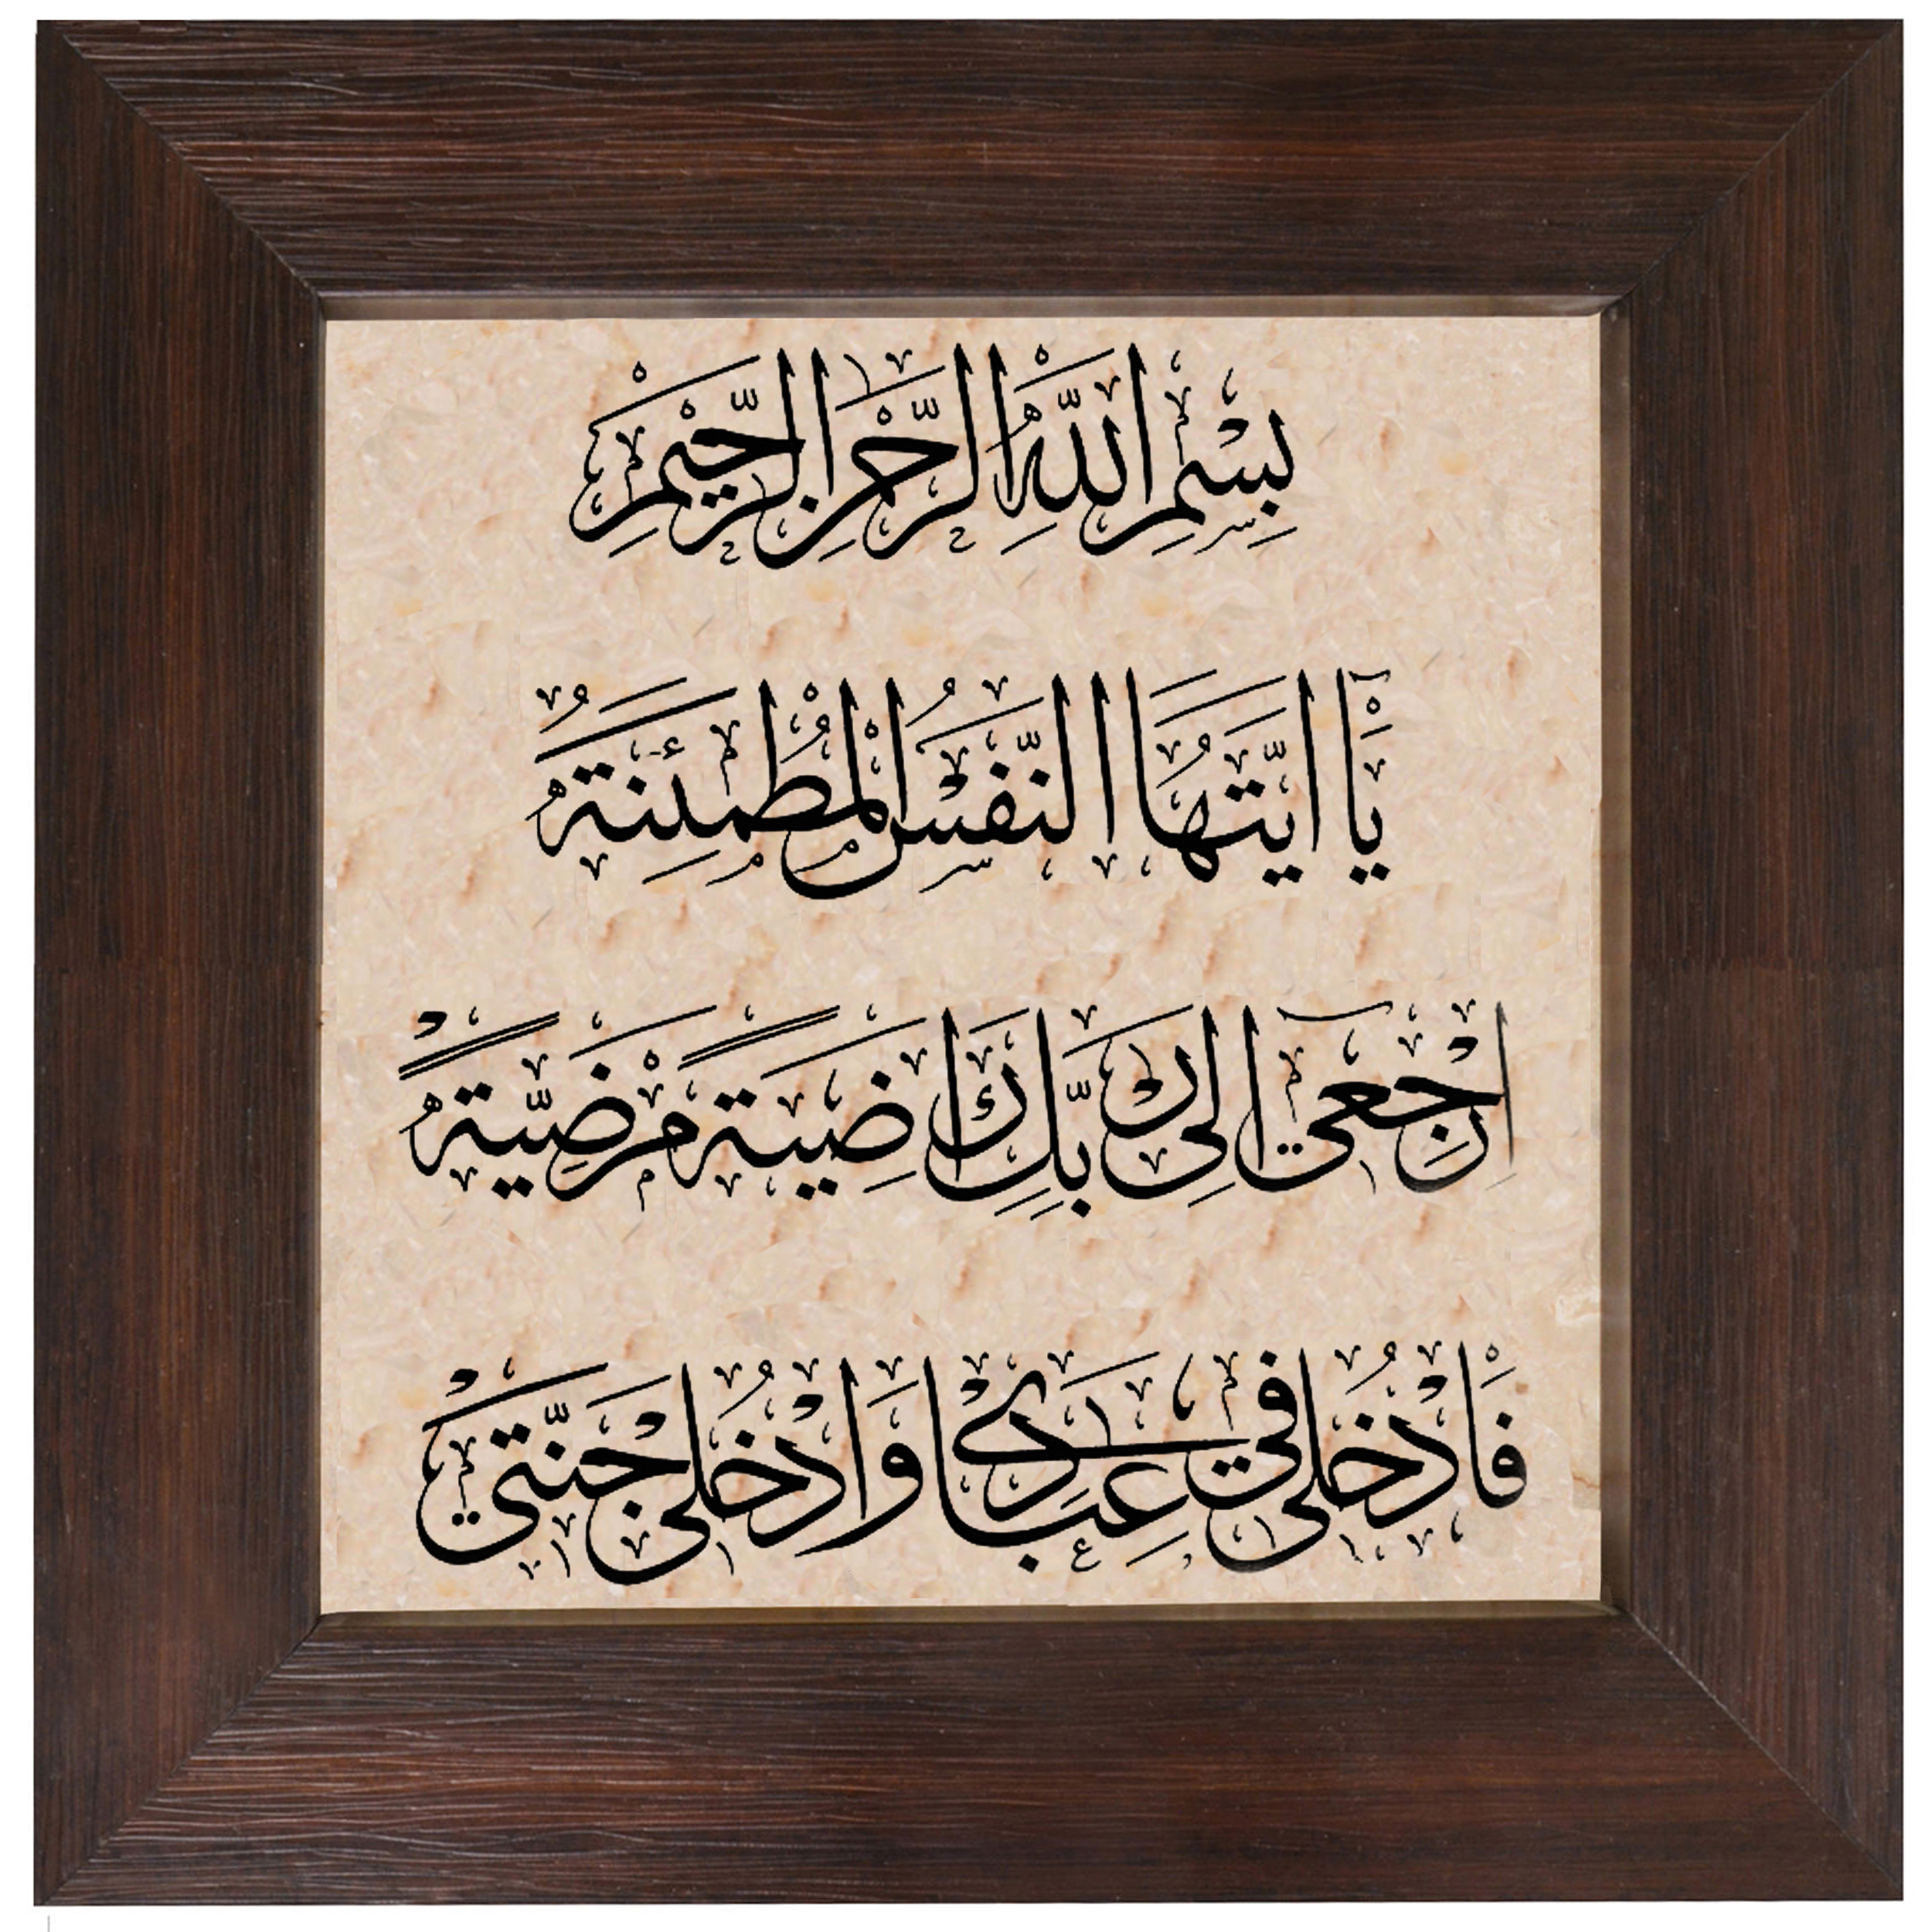 بِسْمِ اللّٰهِ الرَّحْمٰنِ الرَّحِيْمِ
يَآ اَيَّتُهَا النَّفْسُ الْمُطْمَئِنَّةُ
اِرْجِعِيْٓ اِلٰى رَبِّكِ رَاضِيَةً مَرْضِيَّةً
فَادْخُلِيْ فِيْ عِبَادِيْ وَادْخُلِيْ جَنَّتِيْ